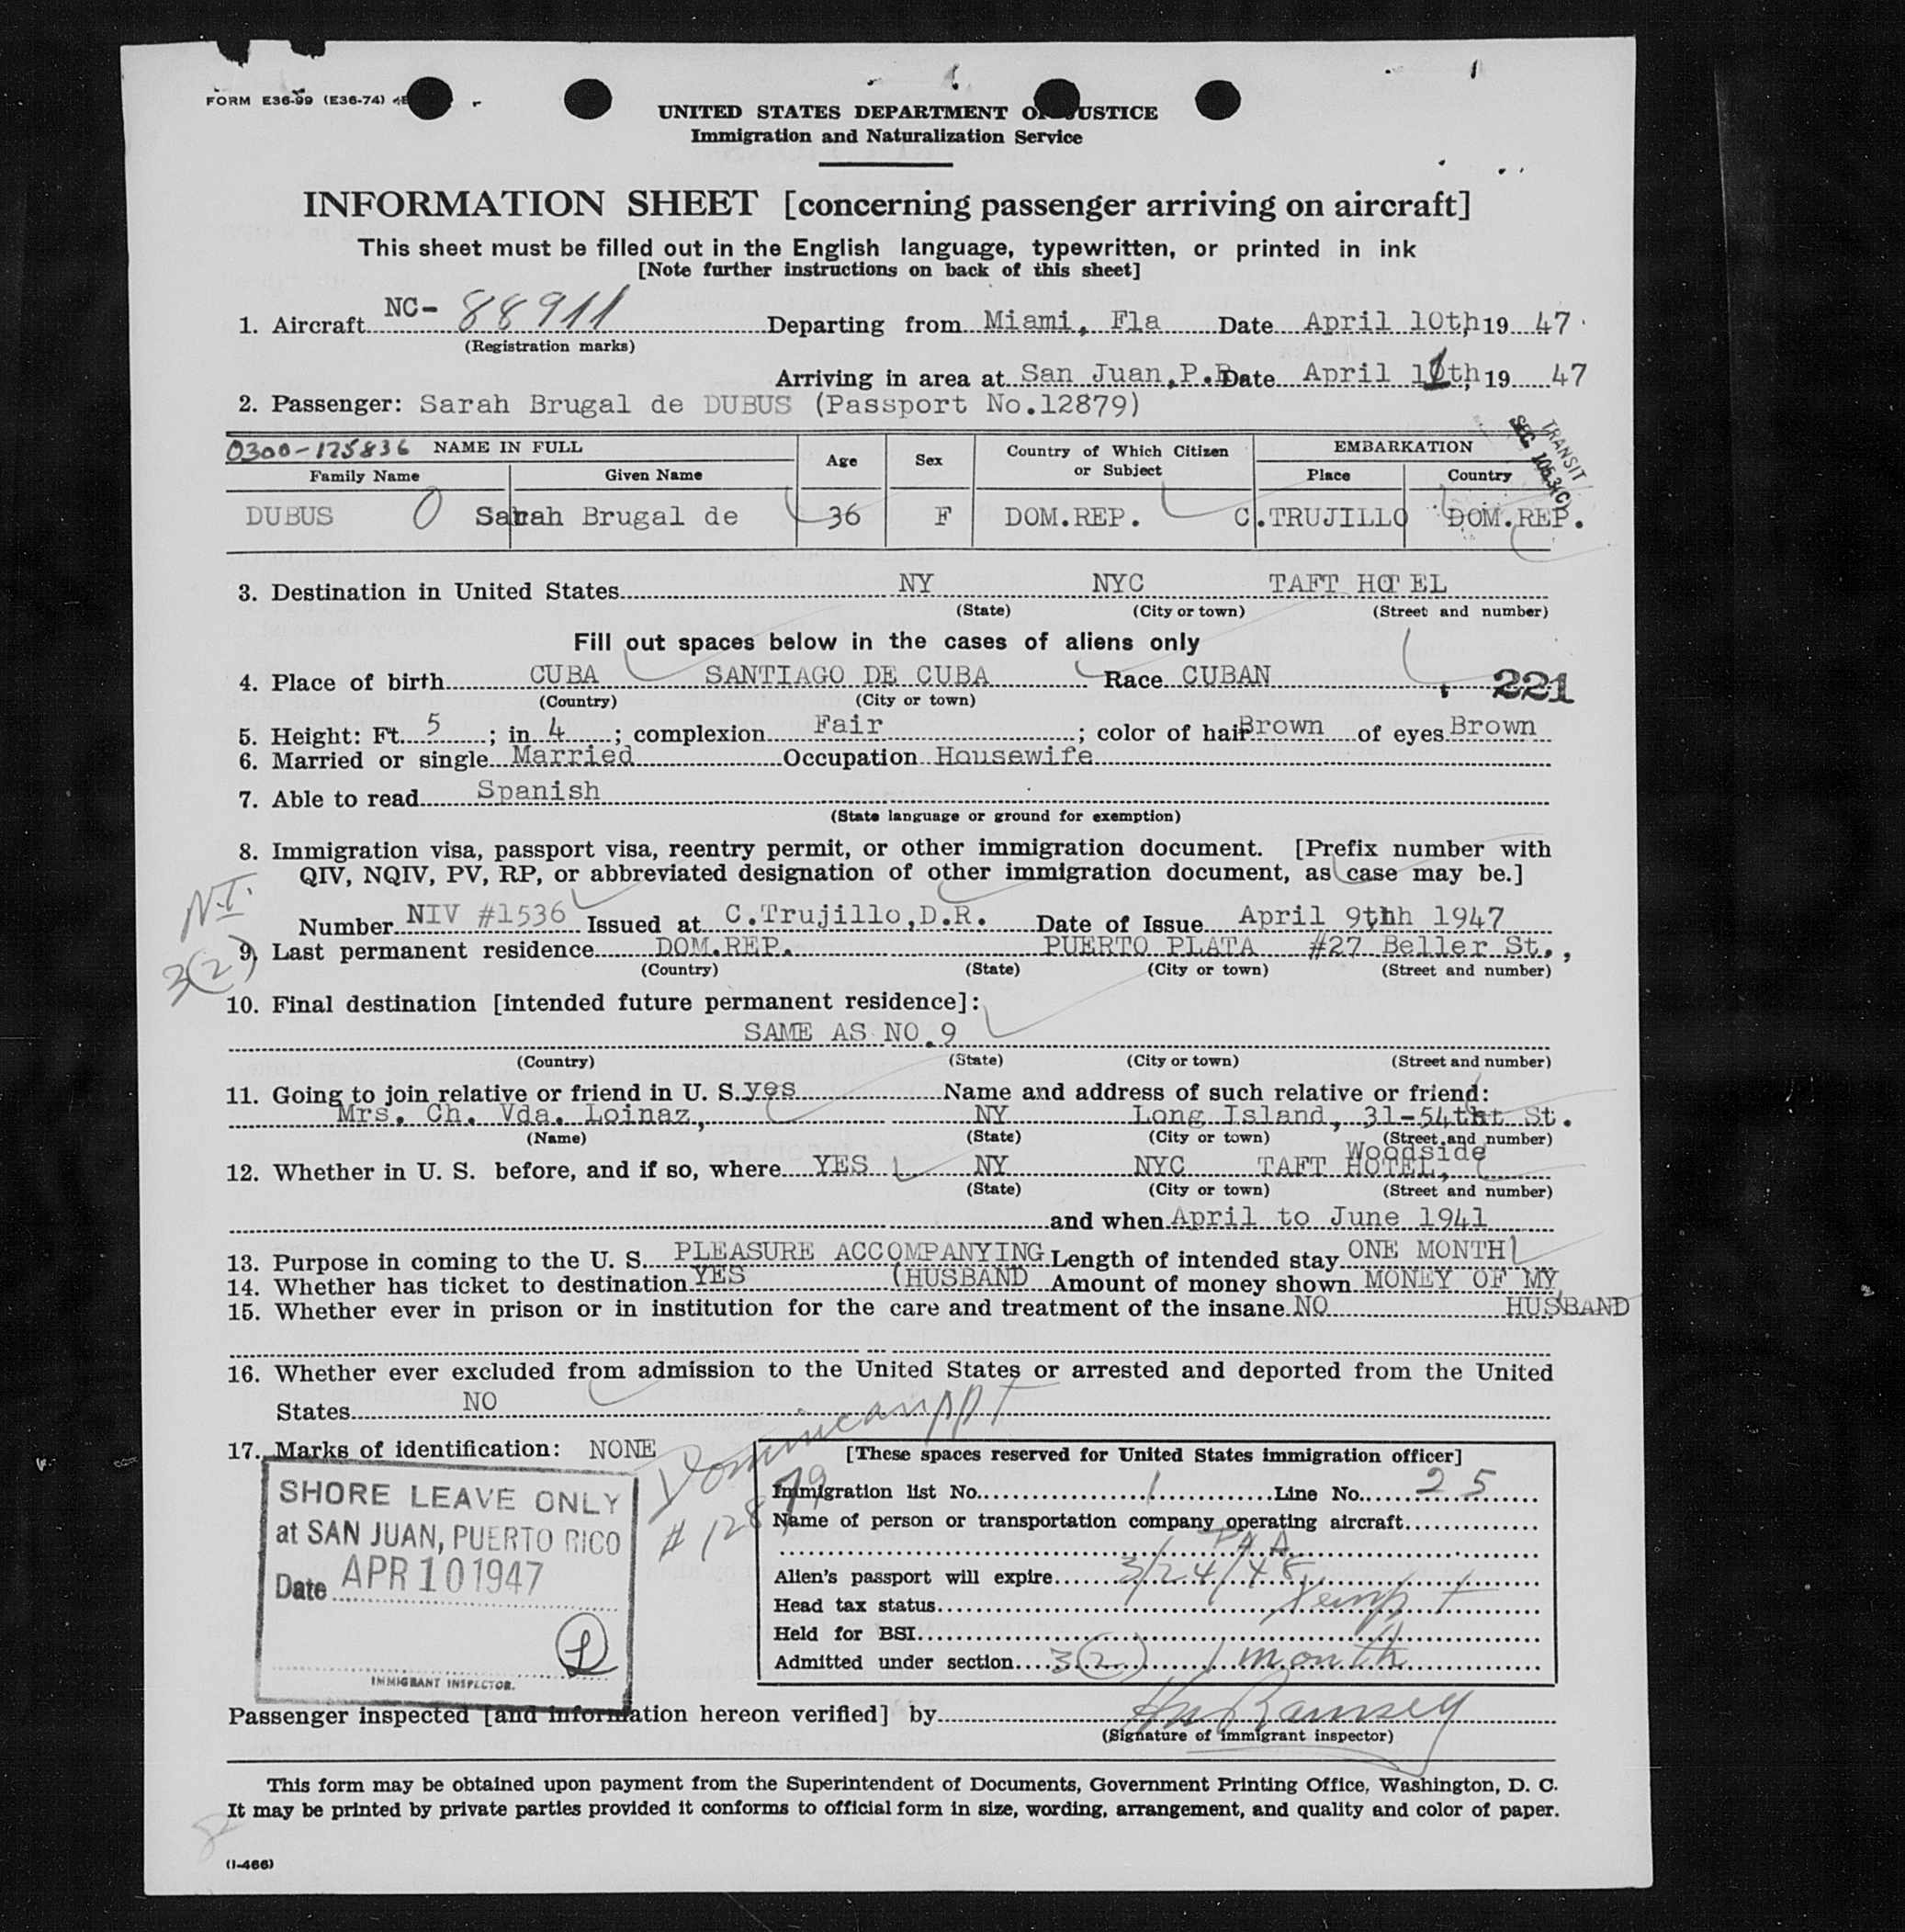 FORM E36-99 (E36-74)
UNITED STATES DEPARTMENT OF JUSTICE
Immigration and Naturalization Service
INFORMATION SHEET [concerning passenger arriving on aircraft]
This sheet must be filled out in the English language, typewritten, or printed in ink
[Note further instructions on back of this sheet]
1. Aircraft NC- 88911 Departing from Miami, Fla Date April 10th, 19 47
(Registration marks)
Arriving in area at San Juan, P.R. Date April 11th, 19 47
2. Passenger: Sarah Brugal de DUBUS (Passport No.12879)
0300-125836 NAME IN FULL Age Sex Country of Which Citizen or Subject EMBARKATION
Family Name Given Name Place Country
TRANSIT
SEC. 105.3(C)
DUBUS 0 Sarah Brugal de 36 F DOM.REP. C.TRUJILLO DOM.REP.
3. Destination in United States NY NYC TAFT HOTEL
(State) (City or town) (Street and number)
Fill out spaces below in the cases of aliens only
4. Place of birth CUBA SANTIAGO DE CUBA Race CUBAN 221
(Country) (City or town)
5. Height: Ft. 5 ; in 4 ; complexion Fair ; color of hair Brown of eyes Brown
6. Married or single Married Occupation Housewife
7. Able to read Spanish
(State language or ground for exemption)
8. Immigration visa, passport visa, reentry permit, or other immigration document. [Prefix number with
QIV, NQIV, PV, RP, or abbreviated designation of other immigration document, as case may be.]
N.I.
Number NIV #1536 Issued at C.Trujillo,D.R. Date of Issue April 9thh 1947
3(2)
9. Last permanent residence DOM.REP. PUERTO PLATA #27 Beller St.,
(Country) (State) (City or town) (Street and number)
10. Final destination [intended future permanent residece]:
SAME AS NO.9
(Country) (State) (City or town) (Street and number)
11. Going to join relative or friend in U. S. yes Name and address of such relative or friend:
Mrs. Ch. Vda. Loinaz, NY Long Island, 31-54tht St.
(Name) (State) (City or town) (Street and number)
Woodside
12. Whether in U. S. before, and if so, where YES NY NYC TAFT HOTEL,
(State) (City or town) (Street and number)
and when April to June 1941
13. Purpose in coming to the U. S. PLEASURE ACCOMPANYING Length of intended stay ONE MONTH
14. Whether has ticket to destination YES (HUSBAND Amount of money shown MONEY OF MY
15. Whether ever in prison or in institution for the care and treatment of the insane NO HUSBAND
16. Whether ever excluded from admission to the United States or arrested and deported from the United
States NO
17. Marks of identification: NONE
Dominican PPT
# 12879
SHORE LEAVE ONLY
at SAN JUAN, PUERTO RICO
Date APR 10 1947
IMMIGRANT INSPECTOR.
[These spaces reserved for United States immigration officer]
Immigration list No. 1 Line No. 25
Name of person or transportation company operating aircraft
PAA
Alien's passport will expire 3/24/48
Head tax status Xempt
Held for BSI
Admitted under section 3(2) 1 month
Passenger inspected [and information hereon verified] by Ramsey
(Signature of immigrant inspector)
This form may be obtained upon payment from the Superintendent of Documents, Government Printing Office, Washington, D. C.
It may be printed by private parties provided it conforms to official form in size, wording, arrangement, and quality and color of paper.
(I-466)